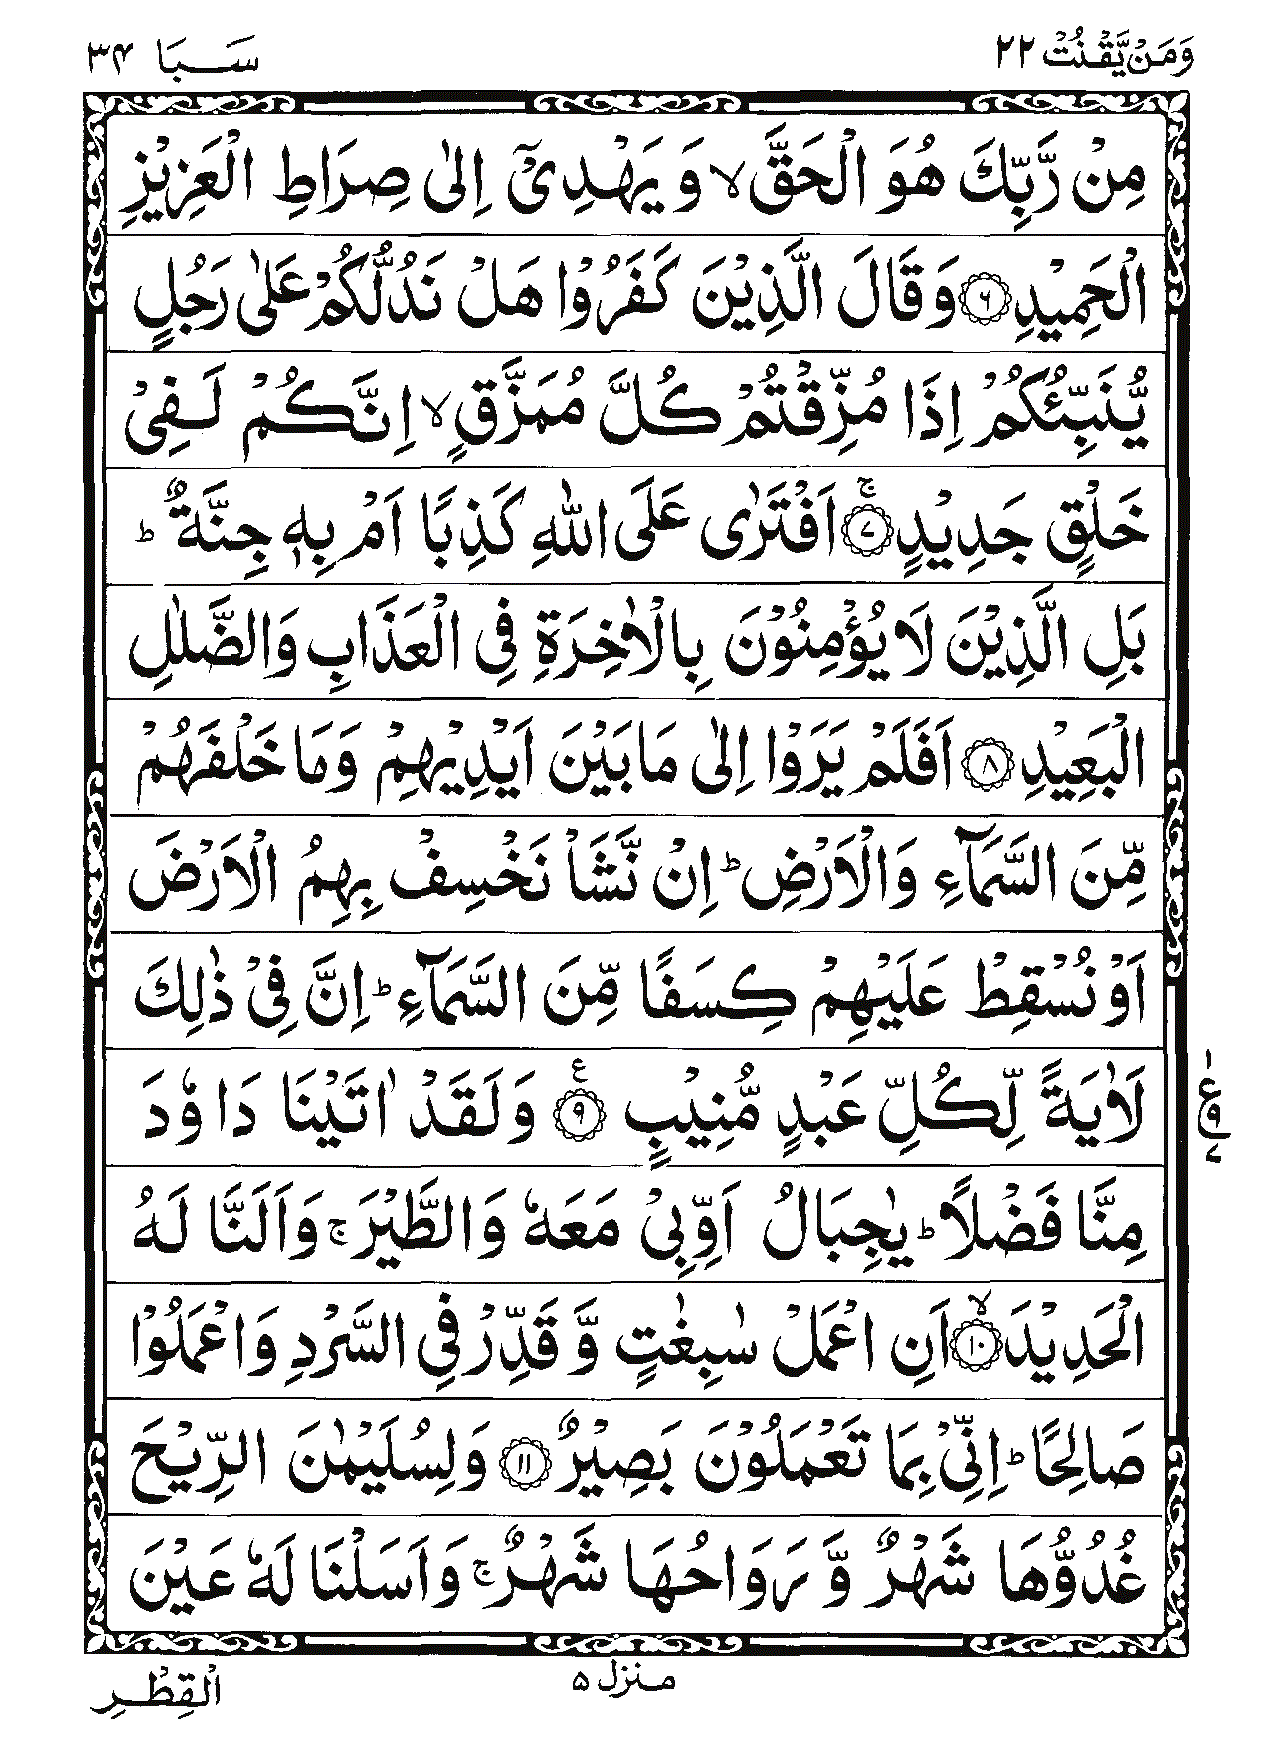 وَمَنْ يَّقْنُتْ ٢٢
سَــبَا ٣٤
مِنْ رَّبِّكَ هُوَ الْحَقَّ ۙ وَ يَهْدِیْۤ اِلٰی صِرَاطِ الْعَزِیْزِ
الْحَمِیْدِ ﴿۶﴾ وَ قَالَ الَّذِیْنَ كَفَرُوْا هَلْ نَدُلُّكُمْ عَلٰی رَجُلٍ
یُّنَبِّئُكُمْ اِذَا مُزِّقْتُمْ كُلَّ مُمَزَّقٍ ۙ اِنَّكُمْ لَفِیْ
خَلْقٍ جَدِیْدٍ ﴿۷﴾ۚ اَفْتَرٰی عَلَی اللّٰهِ كَذِبًا اَمْ بِهٖ جِنَّةٌ ؕ
بَلِ الَّذِیْنَ لَا یُؤْمِنُوْنَ بِالْاٰخِرَةِ فِی الْعَذَابِ وَالضَّلٰلِ
الْبَعِیْدِ ﴿۸﴾ اَفَلَمْ یَرَوْا اِلٰی مَا بَیْنَ اَیْدِیْهِمْ وَمَا خَلْفَهُمْ
مِّنَ السَّمَآءِ وَالْاَرْضِ ؕ اِنْ نَّشَاْ نَخْسِفْ بِهِمُ الْاَرْضَ
اَوْ نُسْقِطْ عَلَیْهِمْ كِسَفًا مِّنَ السَّمَآءِ ؕ اِنَّ فِیْ ذٰلِكَ
لَاٰیَةً لِّكُلِّ عَبْدٍ مُّنِیْبٍ ﴿۹﴾ ع وَلَقَدْ اٰتَیْنَا دَاوٗدَ
۱
ع
۹
۷
مِنَّا فَضْلًا ؕ یٰجِبَالُ اَوِّبِیْ مَعَهٗ وَالطَّیْرَ ۚ وَاَلَنَّا لَهُ
الْحَدِیْدَ ﴿۱۰﴾ۙ اَنِ اعْمَلْ سٰبِغٰتٍ وَّ قَدِّرْ فِی السَّرْدِ وَاعْمَلُوْا
صَالِحًا ؕ اِنِّیْ بِمَا تَعْمَلُوْنَ بَصِیْرٌ ﴿۱۱﴾ وَلِسُلَیْمٰنَ الرِّیْحَ
غُدُوُّهَا شَهْرٌ وَّ رَوَاحُهَا شَهْرٌ ۚ وَاَسَلْنَا لَهٗ عَیْنَ
منزل ۵
الْقِطْرِ